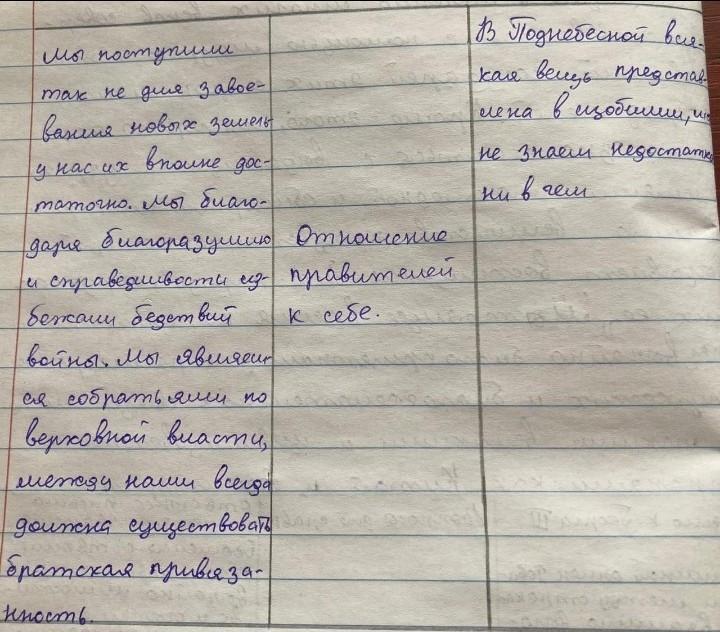 мы поступили
так не для завое-
вания новых земель
у нас их вполне дос-
таточно. Мы благо-
даря благоразумию
и справедливости из-
бежали бедствий
войны. Мы являем-
ся собратьями по
верховной власти,
между нами всегда
должна существовать
братская привяза-
нность.
Отношение
правителей
к себе.
В Поднебесной вся-
кая вещь представ-
лена в изобилии,
не знаем недостатка
ни в чем